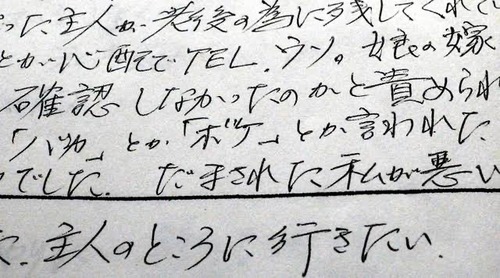 った主人が老後の為に残してくれてい
とか心配でTEL.ウソ。娘の嫁
確認しなかったのかと責められ
「バカ」とか「ボケ」とか言われた
でした. だまされた私が悪い
た. 主人のところに行きたい.